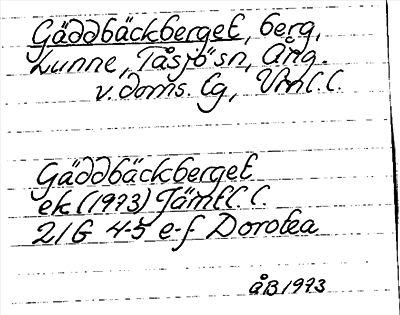 Gäddbäckberget, berg,
Lunne, Tåsjö sn, Ång.
v. doms. lg, Vml. l.
Gäddbäckberget
ek (1973) Jämtl. l.
21G 4-5 e-f Dorotea
åB 1973